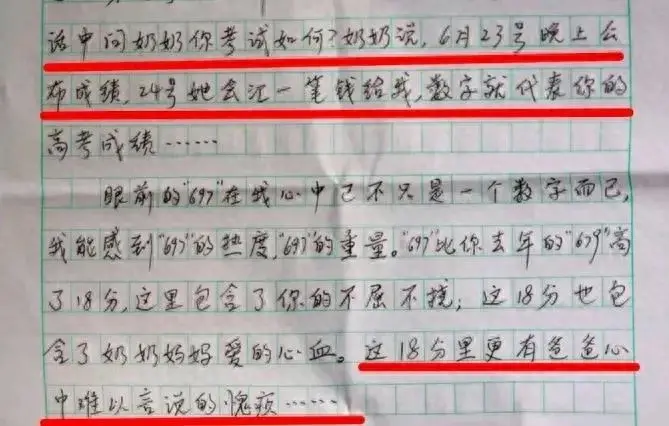 话中问奶奶你考试如何?奶奶说,6月23号晚上公
布成绩,24号她会汇一笔钱给我,数字就代表你的
高考成绩……
眼前的“697”在我心中已不只是一个数字而已,
我能感到“697”的热度,“697”的重量。“697”比你去年的“679”高
了18分,这里包含了你的不屈不挠;这18分也包
含了奶奶妈妈爱的心血。这18分里更有爸爸心
中难以言说的愧疚……